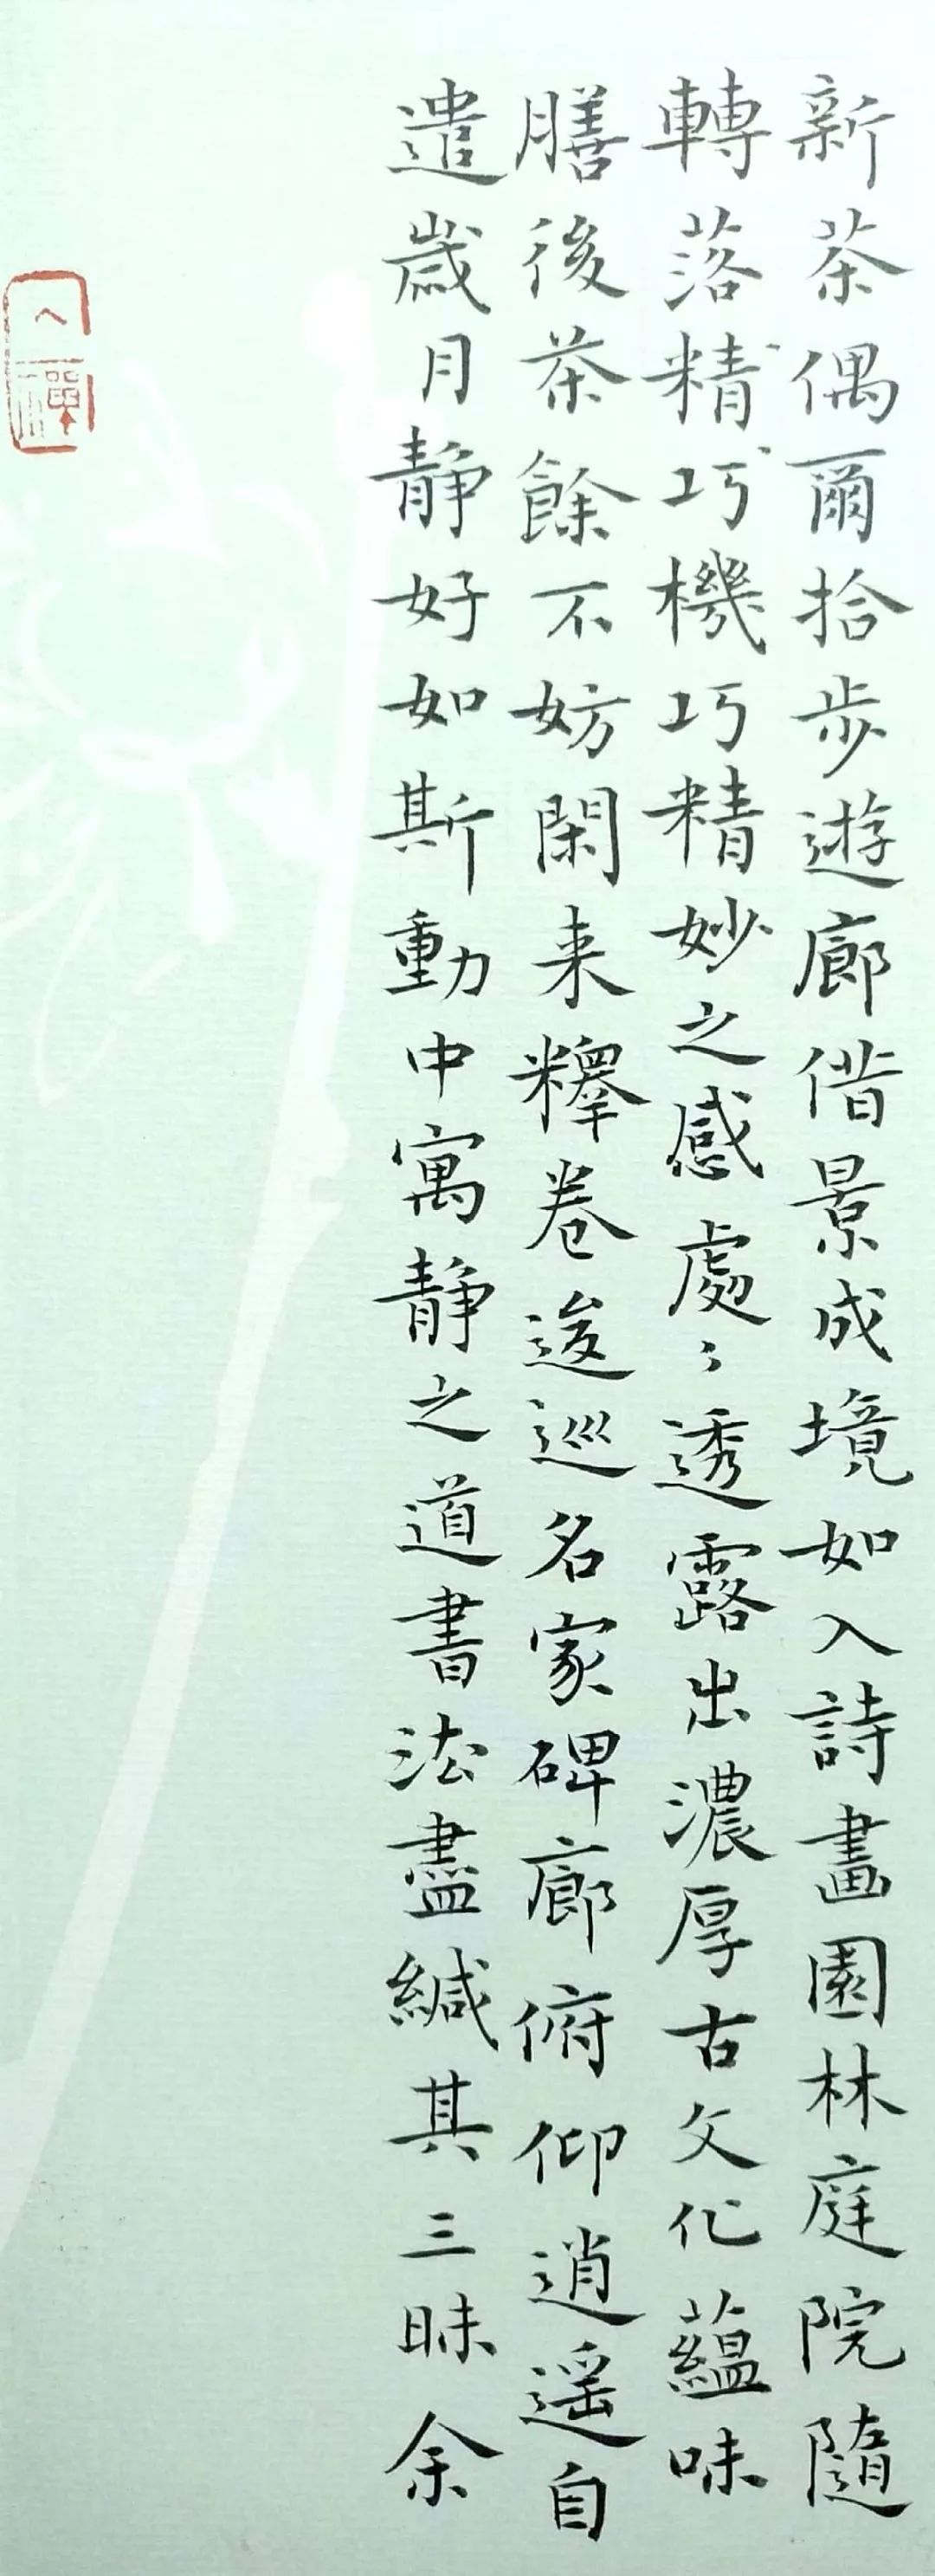 新茶偶爾拾步遊廊借景成境如入詩畫園林庭院隨
轉落精巧機巧精妙之感處〻透露出濃厚古文化蘊味
膳後茶餘不妨閑来釋卷逡巡名家碑廊俯仰逍遥自
遣歲月靜好如斯動中寓靜之道書法盡緘其三昧余